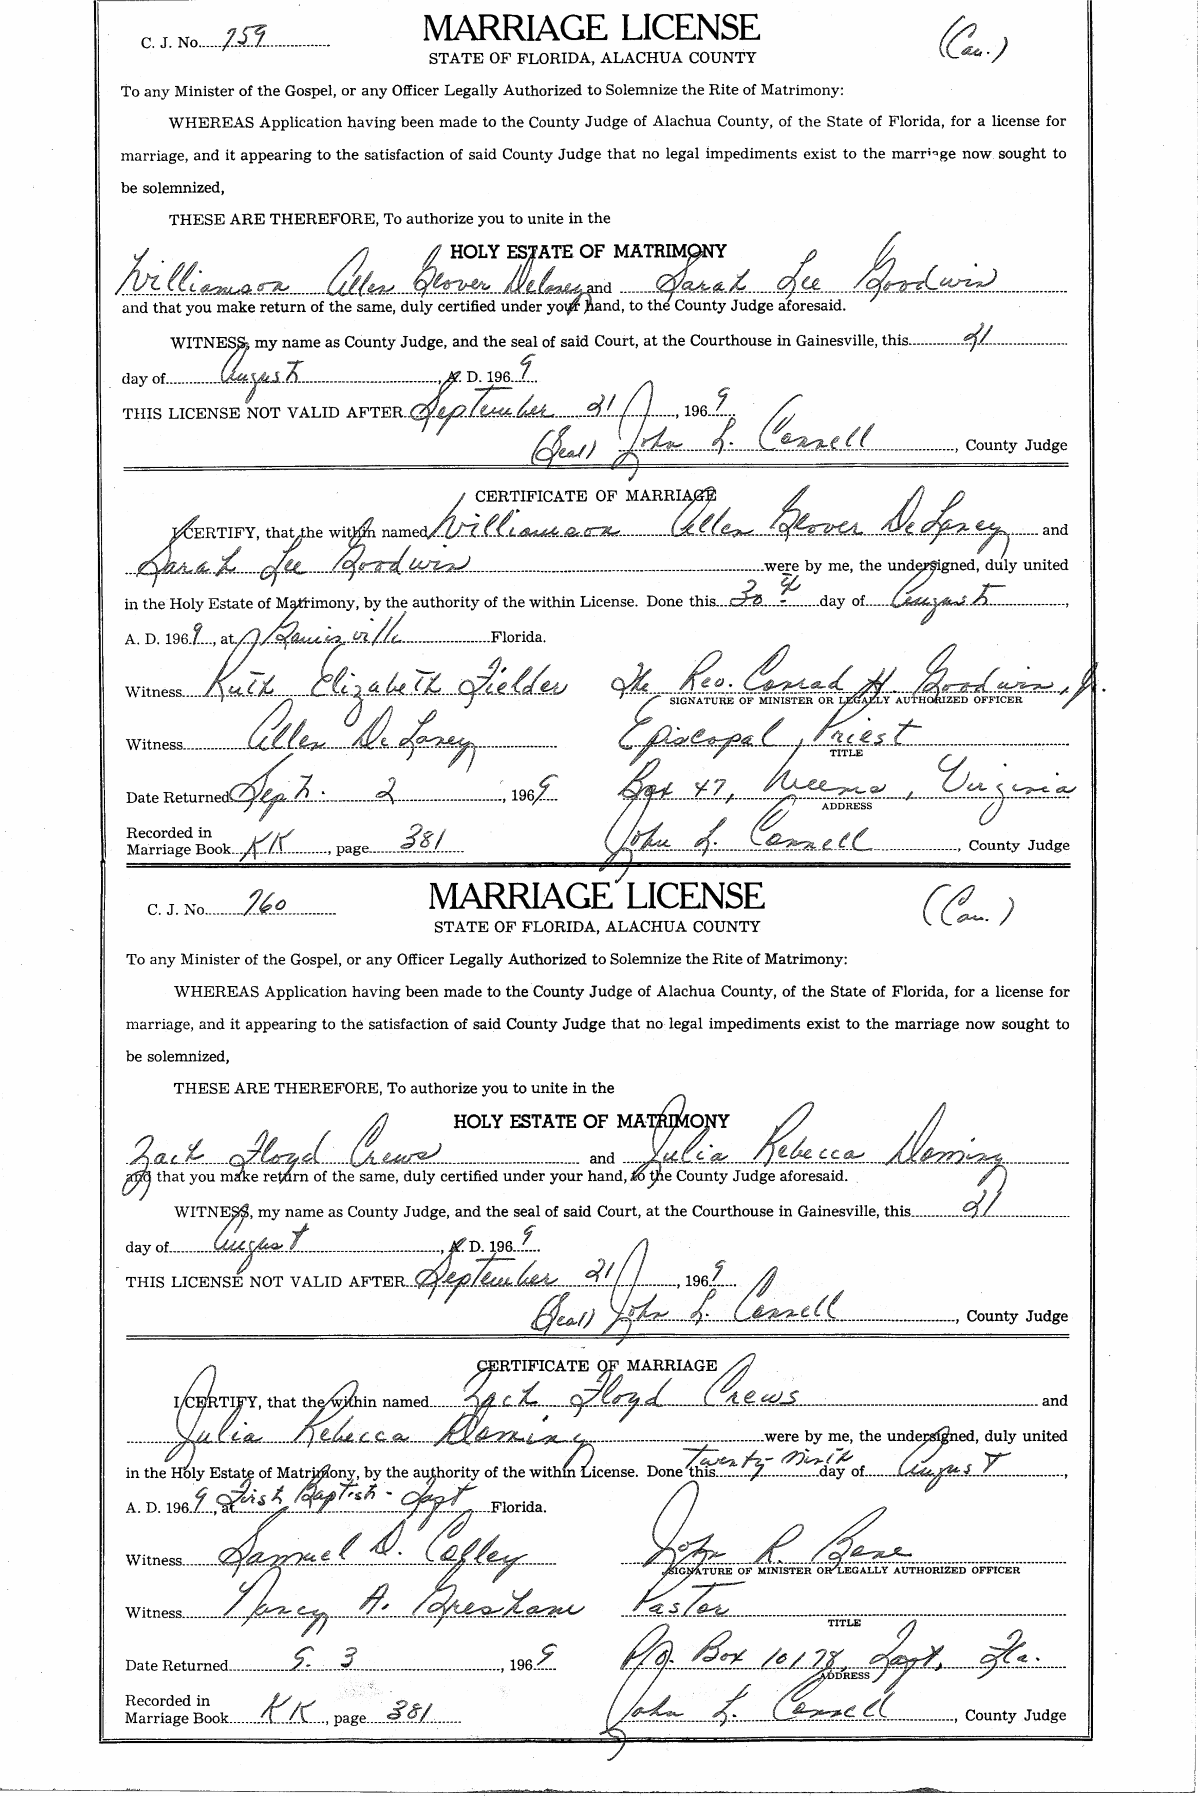 C. J. No. 759 MARRIAGE LICENSE (Cau.)
STATE OF FLORIDA, ALACHUA COUNTY
To any Minister of the Gospel, or any Officer Legally Authorized to Solemnize the Rite of Matrimony:
WHEREAS Application having been made to the County Judge of Alachua County, of the State of Florida, for a license for
marriage, and it appearing to the satisfaction of said County Judge that no legal impediments exist to the marriage now sought to
be solemnized,
THESE ARE THEREFORE, To authorize you to unite in the
HOLY ESTATE OF MATRIMONY
Williamson Allen Glover Delaney and Sarah Lee Goodwin
and that you make return of the same, duly certified under your hand, to the County Judge aforesaid.
WITNESS, my name as County Judge, and the seal of said Court, at the Courthouse in Gainesville, this 21
day of August, A. D. 1969
THIS LICENSE NOT VALID AFTER September 21, 1969
(Seal) John L. Connell, County Judge
CERTIFICATE OF MARRIAGE
I CERTIFY, that the within named Williamson Allen Glover DeLaney and
Sarah Lee Goodwin were by me, the undersigned, duly united
in the Holy Estate of Matrimony, by the authority of the within License. Done this 30th day of August,
A. D. 1969, at Gainesville Florida.
Witness Ruth Elizabeth Fielder The Rev. Conrad H. Goodwin, Jr.
SIGNATURE OF MINISTER OR LEGALLY AUTHORIZED OFFICER
Witness Allen DeLaney Episcopal Priest
TITLE
Date Returned Sept. 2, 1969 Box 47, Weems, Virginia
ADDRESS
Recorded in
Marriage Book KK, page 381 John L. Connell, County Judge
C. J. No. 760 MARRIAGE LICENSE (Cau.)
STATE OF FLORIDA, ALACHUA COUNTY
To any Minister of the Gospel, or any Officer Legally Authorized to Solemnize the Rite of Matrimony:
WHEREAS Application having been made to the County Judge of Alachua County, of the State of Florida, for a license for
marriage, and it appearing to the satisfaction of said County Judge that no legal impediments exist to the marriage now sought to
be solemnized,
THESE ARE THEREFORE, To authorize you to unite in the
HOLY ESTATE OF MATRIMONY
Zack Floyd Crews and Julia Rebecca Doming
and that you make return of the same, duly certified under your hand, to the County Judge aforesaid.
WITNESS, my name as County Judge, and the seal of said Court, at the Courthouse in Gainesville, this 21
day of August, A. D. 1969
THIS LICENSE NOT VALID AFTER September 21, 1969
(Seal) John L. Connell, County Judge
CERTIFICATE OF MARRIAGE
I CERTIFY, that the within named Zack Floyd Crews and
Julia Rebecca Doming were by me, the undersigned, duly united
in the Holy Estate of Matrimony, by the authority of the within License. Done this twenty-ninth day of August,
A. D. 1969, at First Baptist - Florida.
Witness Samuel D. John R.
SIGNATURE OF MINISTER OR LEGALLY AUTHORIZED OFFICER
Witness Nancy A. Gresham Pastor
TITLE
Date Returned 9. 3, 1969 P.O. Box 10178, Fla.
ADDRESS
Recorded in
Marriage Book KK, page 381 John L. Connell, County Judge